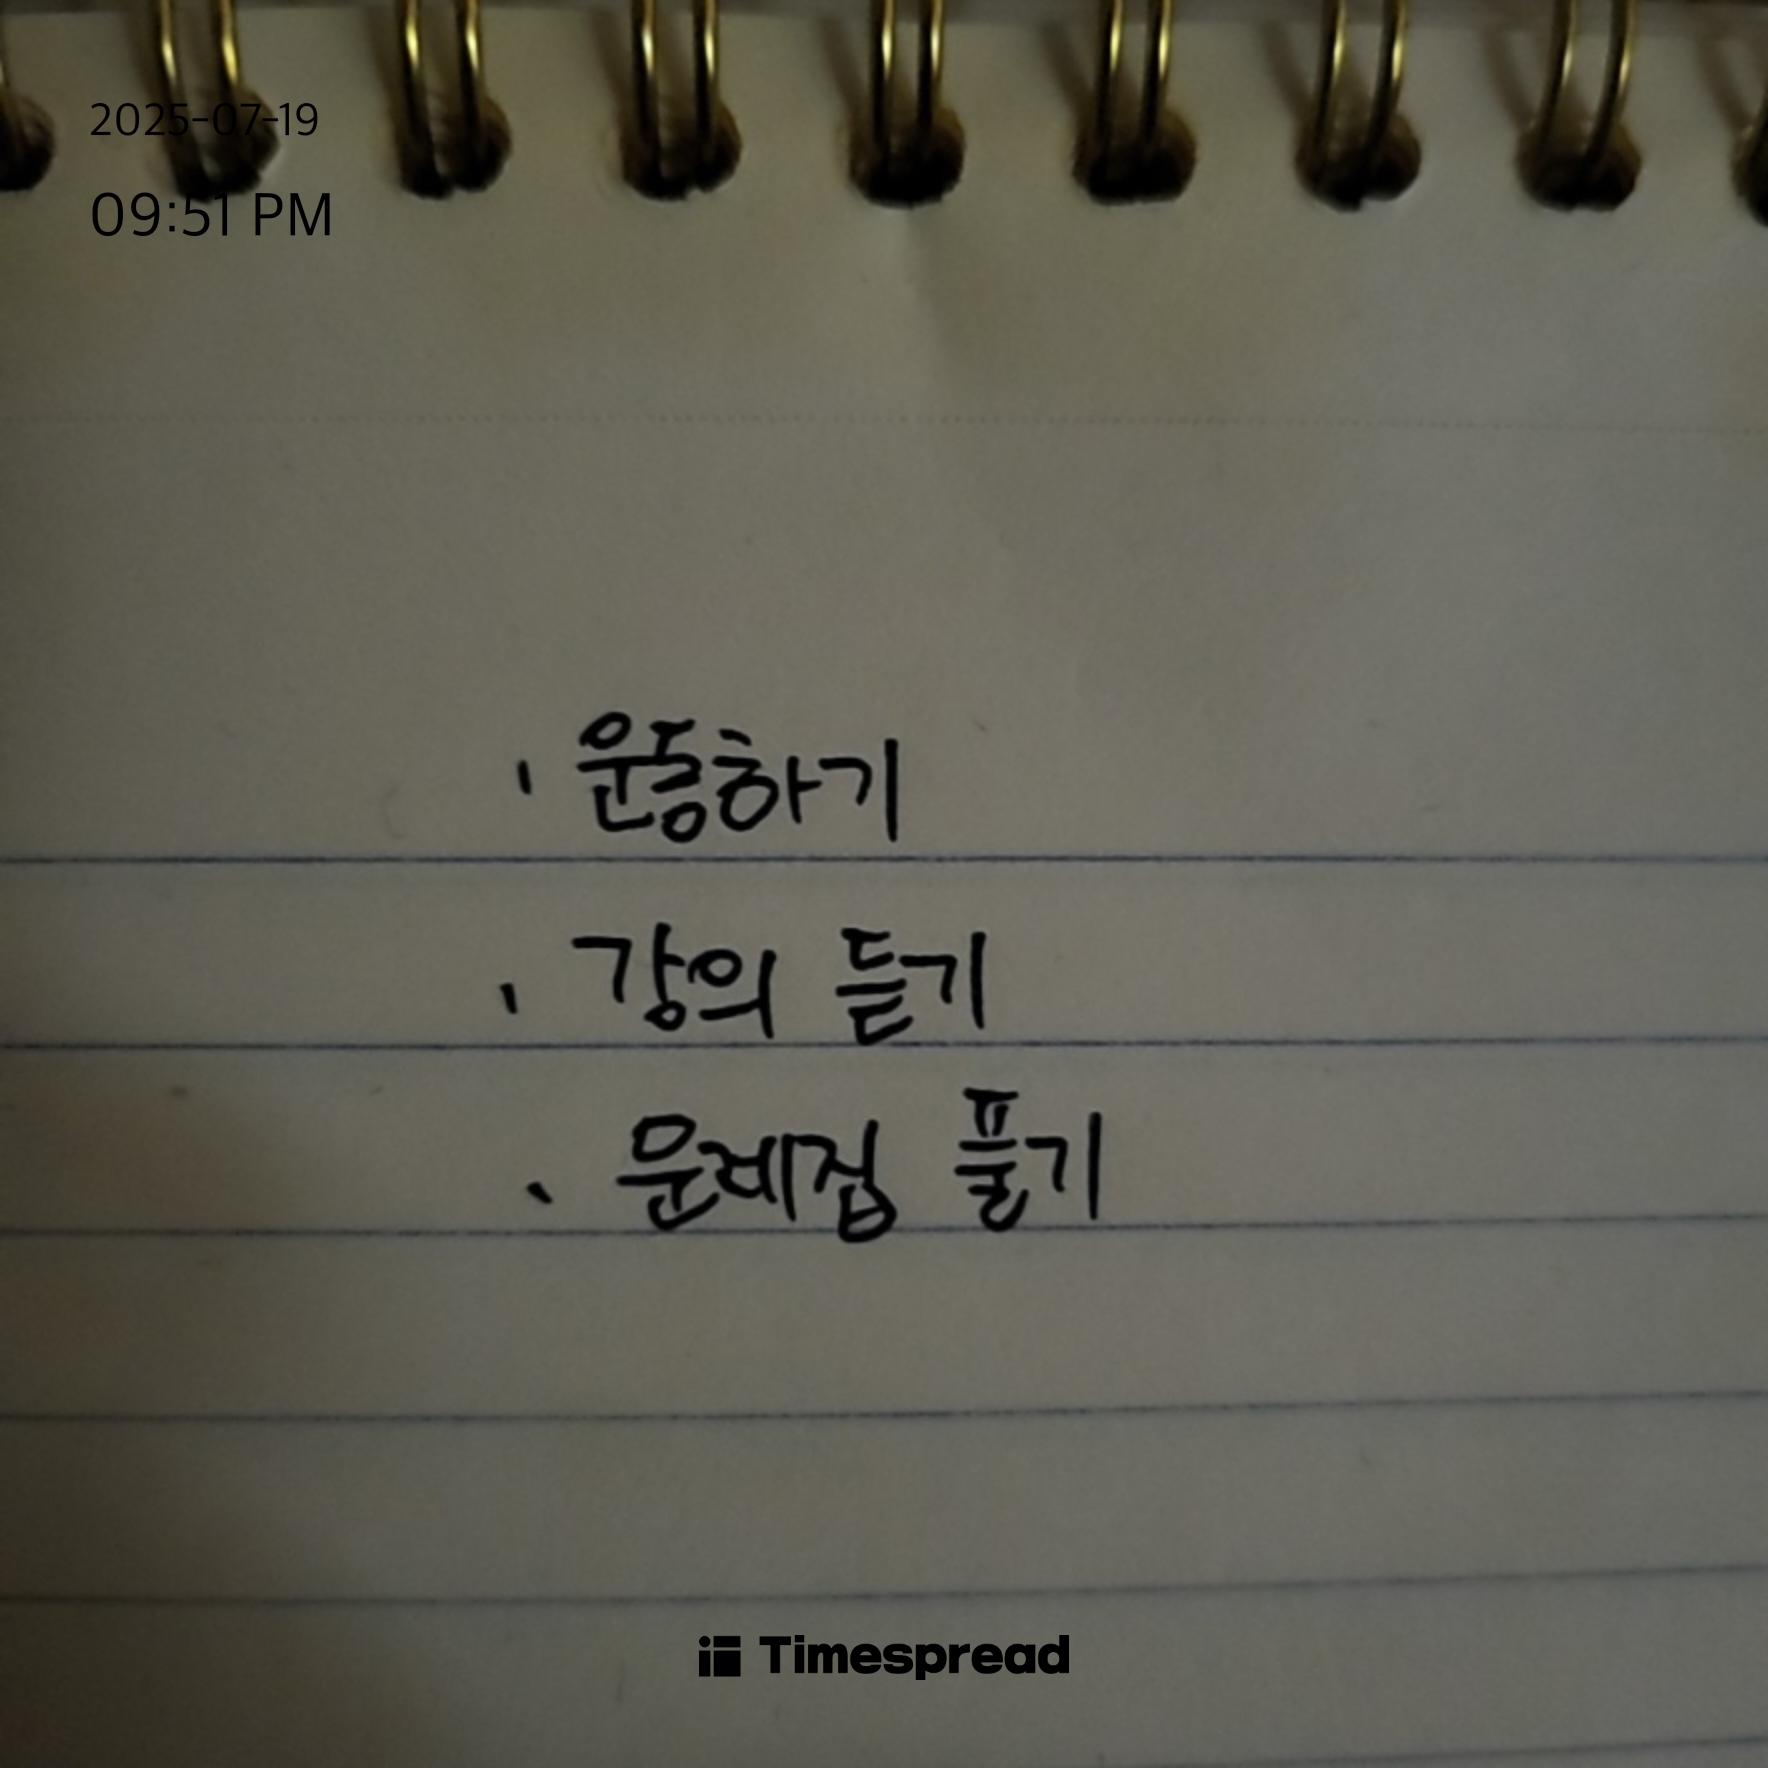 2025-07-19
09:51 PM
· 운동하기
· 강의 듣기
· 문제집 풀기
Timespread